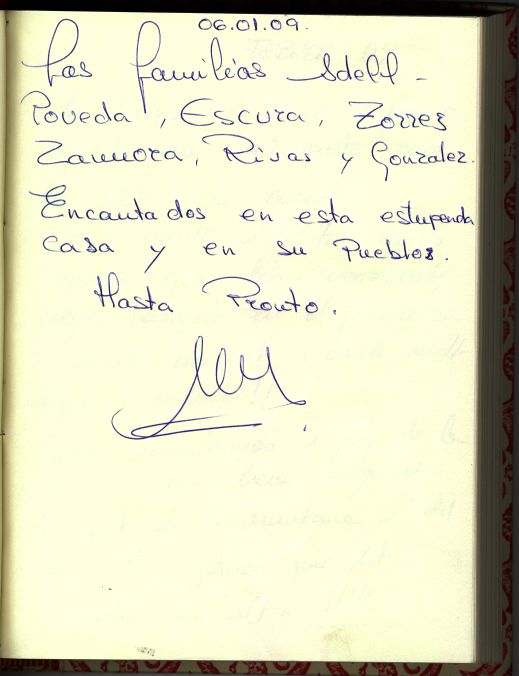 06.01.09.
Las familias Adell -
Poveda, Escura, Torres
Zamora, Rivas y Gonzalez.
Encantados en esta estupenda
casa y en su Pueblos.
Hasta Pronto.